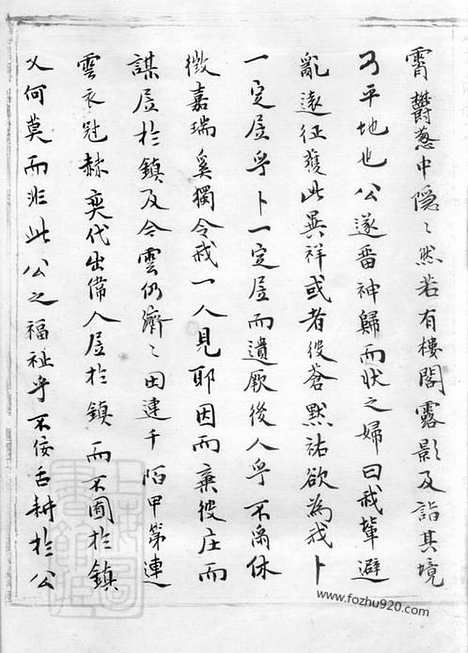 霄鬱葱中隠〻然若有樓閣露影及詣其境
乃平地也公遂畱神歸而状之婦曰我輩避
亂遠征獲此異祥或者彼蒼默祐欲為我卜
一定居乎卜一定居而遺厥後人乎不禹休
徴嘉瑞奚獨令我一人見耶因而棄彼庄而
謀居於鎮及今雲仍濟〻田連千陌甲第連
雲衣冠赫奕代出偹人居於鎮而不囿於鎮
又何莫而非此公之福祉乎不佞舌耕於公
www.fozhu920.com